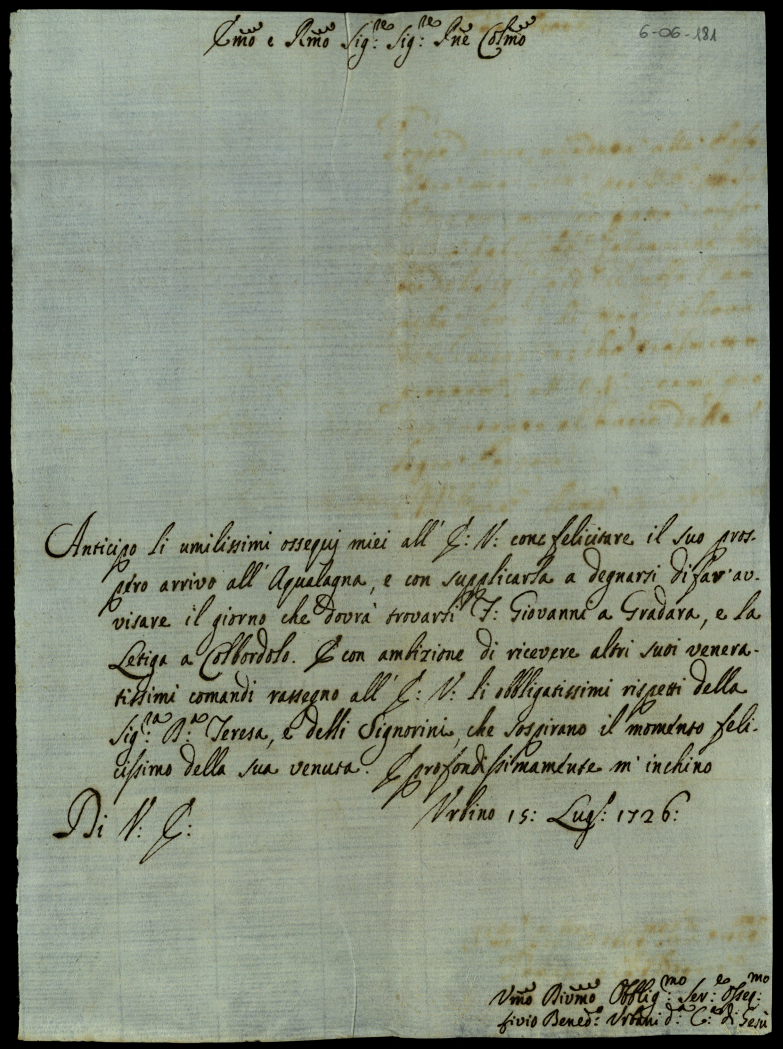 Emo e Rmo Sig:re Sig:re Pne Colmo
6-06-181
Anticipo li umilissimi ossequj miei all' E: V: con felicitare il suo pros-
pero arrivo all' Aqualagna, e con supplicarla a degnarsi di far' av-
visare il giorno che dovrà trovarsi F: Giovanni a Gradara, e la
Letiga a Colbordolo. E con ambizione di ricevere altri suoi venera-
tissimi comandi rassegno all' E: V: li obbligatissimi rispetti della
Sig:ra Teresa, e delli Signorini, che sospirano il momento feli-
cissimo della sua venuta. E profondissimamente m' inchino
Di V: E: Urbino 15: Lug: 1726:
Vmo Divmo Obblig:mo Ser:e Osseq:mo
Bened: Urbani d: C: di Gesù